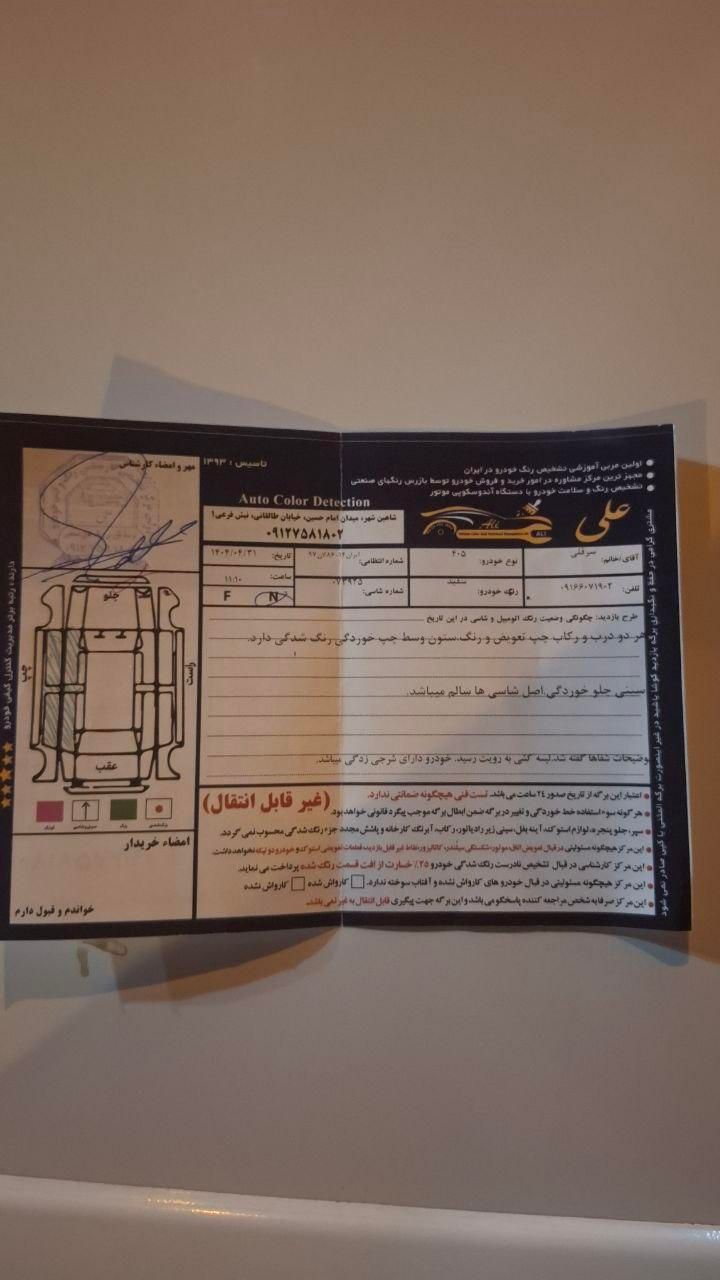 اولین مربی آموزشی تشخیص رنگ خودرو در ایران
مجهز ترین مرکز مشاوره در امور خرید و فروش خودرو توسط بازرس رنگهای صنعتی
تشخیص رنگ و سلامت خودرو با دستگاه آندوسکوپی موتور
علی
Ali
ALI
تاسیس : ۱۳۹۳
Auto Color Detection
شاهین شهر، میدان امام حسین، خیابان طالقانی، نبش فرعی۱
۰۹۱۲۷۵۸۱۸۰۲
آقای/خانم: سرقلی
نوع خودرو: ۴۰۵
شماره انتظامی:
تاریخ: ۱۴۰۴/۰۴/۳۱
تلفن: ۰۹۱۶۶۰۷۱۹۰۲
رنگ خودرو: سفید
شماره شاسی: ۰۷۳۹۲۵
ساعت: ۱۱:۱۰
F N
طرح بازدید: چگونگی وضعیت رنگ اتومبیل و شاسی در این تاریخ
هر دو درب و رکاب چپ تعویض و رنگ.ستون وسط چپ خوردگی رنگ شدگی دارد.
سینی جلو خوردگی.اصل شاسی ها سالم میباشد.
توضیحات شفاها گفته شد.لیسه گلگی به رویت رسید. خودرو دارای شرجی زدگی میباشد.
اعتبار این برگه از تاریخ صدور ۲۴ ساعت می باشد. تست فنی هیچگونه ضمانتی ندارد.
(غیر قابل انتقال)
هر گونه سوء استفاده خط خوردگی و تغییر در برگه ضمن ابطال برگه موجب پیگرد قانونی خواهد بود.
سپر، جلو پنجره، لوازم استوک، آینه بغل، سینی زیر رادیاتور، رکاب، آبرنگ کارخانه و پاشش مجدد جزء رنگ شدگی محسوب نمی گردد.
این مرکز کارشناسی در قبال تشخیص نادرست رنگ شدگی خودرو ۲۵٪ خسارت از افت قسمت رنگ شده پرداخت می نماید.
این مرکز هیچگونه مسئولیتی در قبال خودرو های کارواش نشده و آفتاب سوخته ندارد. کارواش شده کارواش نشده
این مرکز صرفا به شخص مراجعه کننده پاسخگو می باشد و این برگه جهت پیگیری قابل انتقال به غیر نمی باشد.
مهر و امضاء کارشناس
جلو
چپ
راست
عقب
امضاء خریدار
خواندم و قبول دارم
دارنده رتبه برتر مدیریت کنترل کیفی خودرو